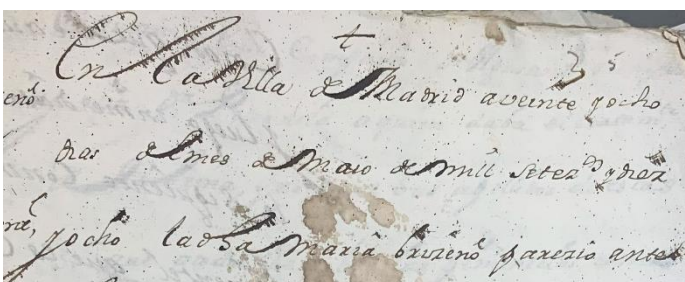 En la Villa de Madrid a veinte y ocho
dias del mes de Maio de mill setez.os y diez
y ocho la dha Maria brizeno parezio antes